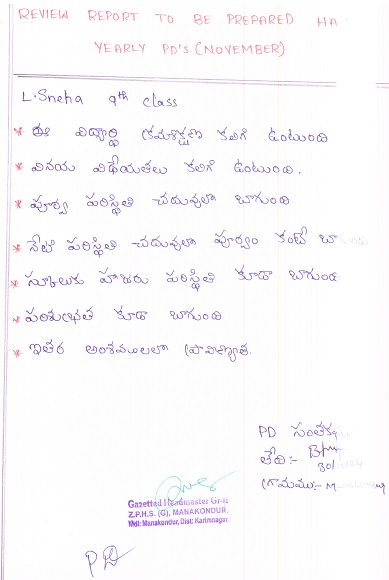 REVIEW REPORT TO BE PREPARED HA
YEARLY PD's (NOVEMBER)
L.Sneha 9th class
* ఈ విద్యార్థి క్రమశిక్షణ కలిగి ఉంటుంది
* వినయ విధేయతలు కలిగి ఉంటుంది.
* పూర్వ పరిస్థితి చదువులా బాగుంది
* నేటి పరిస్థితి చదువులా పూర్వం కంటే
* స్కూలుకు హాజరు పరిస్థితి కూడా బాగుంది
* పరిశుభ్రత కూడా బాగుంది
* ఇతర అంశములలా ప్రావిణ్యత.
PD సంతకం
తేది:-
గ్రామము:-
Gazetted Headmaster Gr-II
Z.P.H.S. (G), MANAKONDUR.
Mdl: Manakondur, Dist: Karimnagar.
PD